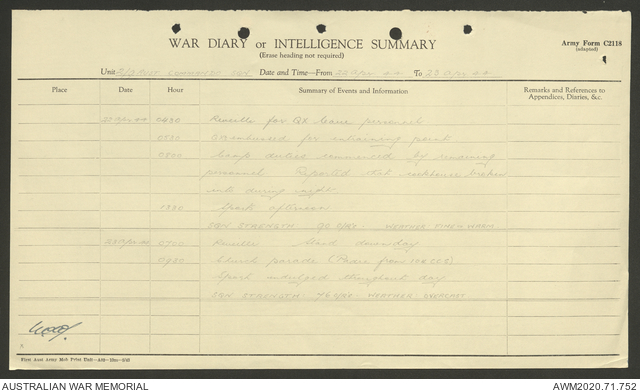 WAR DIARY or INTELLIGENCE SUMMARY
(Erase heading not required)
Army Form C2118
(adapted)
Unit COMMANDO SQN Date and Time—From 22 Apr 44 To 23 Apr 44
Place Date Hour Summary of Events and Information Remarks and References to Appendices, Diaries, &c.
22 Apr 44 0430 Reveille for leave personnel
0530 Embussed for entraining point
0800 Camp duties commenced by remaining
personnel Reported that cookhouse broken
into during night
1330 Sports afternoon
SQN STRENGTH WEATHER FINE & WARM
23 Apr 44 0700 Reveille Stand down day
0930 Church parade (Padre from CCS)
Sport indulged throughout day
SQN STRENGTH WEATHER OVERCAST
First Aust Army Mob Print Unit
AUSTRALIAN WAR MEMORIAL
AWM2020.71.752